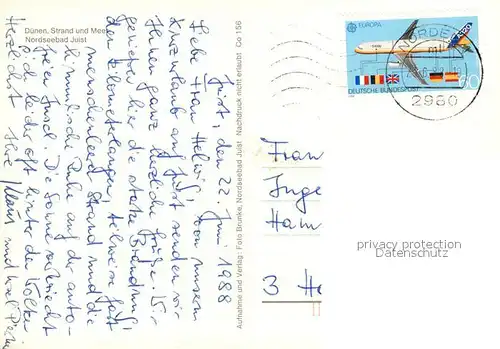 Dünen, Strand und Meer
Nordseebad Juist
Juist, den 22. Juni 1988
Liebe Frau Helwis, von unserem
Kurzurlaub auf Juist senden wir
Ihnen ganz herzliche Grüße. Wir
genießen hier die starke Brandung,
den kilometerlangen, teilweise fast
menschenleeren Strand und die
himmlische Ruhe auf der auto-
freien Insel. Die Sonne verkriecht
sich leider oft hinter den Wolken
Herzlichst Ihre und
Aufnahme und Verlag: Foto Brunke, Nordseebad Juist Nachdruck nicht erlaubt! Co 156
EUROPA
DEUTSCHE BUNDESPOST
60
NORDEN
2980
Frau
Inge
3 Ha
privacy protection
Datenschutz